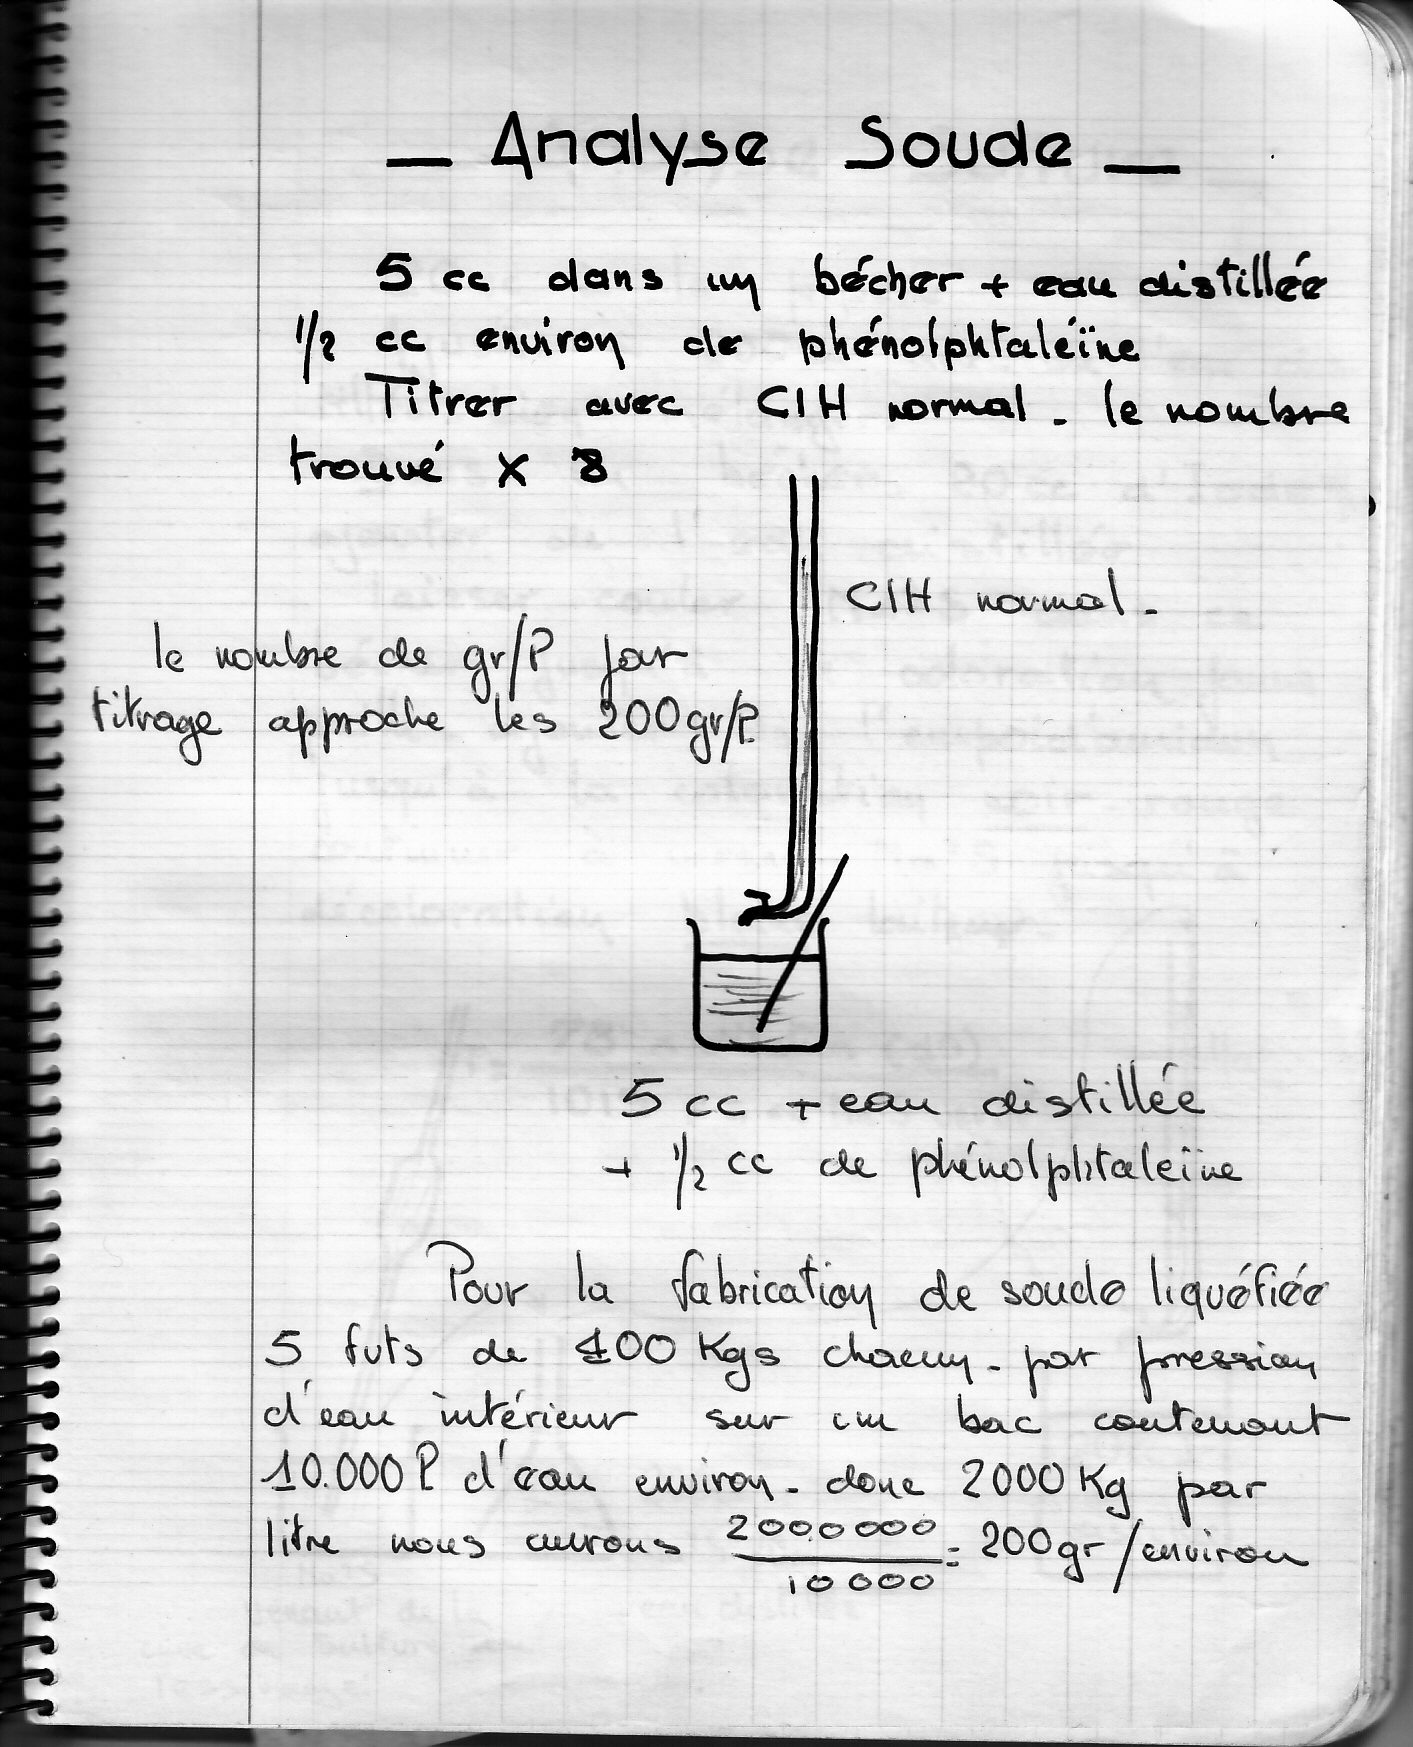 — Analyse Soude —
5 cc dans un bécher + eau distillée
1/2 cc environ de phénolphtaléïne
Titrer avec ClH normal - le nombre
trouvé x 8
ClH normal -
le nombre de gr/l par
titrage approche les 200gr/l
5 cc + eau distillée
+ 1/2 cc de phénolphtaleïne
Pour la fabrication de soude liquéfiée
5 futs de 400 Kgs chacun - par pression
d'eau intérieur sur un bac contenant
10.000 l d'eau environ - donc 2000 Kg par
litre nous aurons 2000000 / 10000 = 200gr/environ